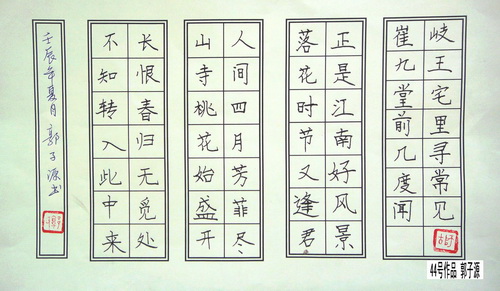 岐王宅里寻常见
崔九堂前几度闻
正是江南好风景
落花时节又逢君
人间四月芳菲尽
山寺桃花始盛开
长恨春归无觅处
不知转入此中来
壬辰年夏月 郭子源书
44号作品 郭子源